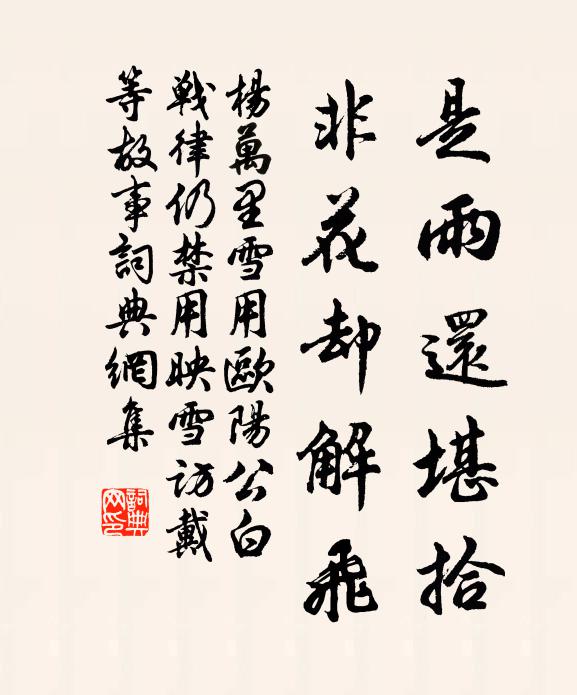 是雨還堪拾
非花却解飛
楊萬里雪用歐陽公白
戦律仍禁用映雪訪戴
等故事詞典網集
詞典网印